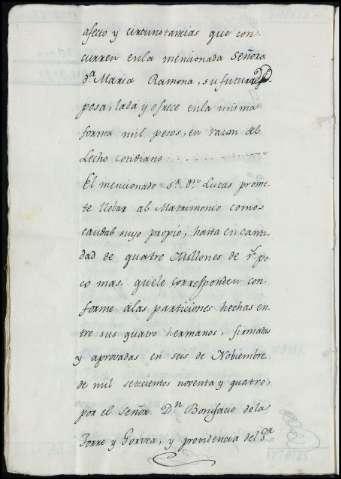 afecto y circunstancias que con
curren enla mencionada Señora
dª Maria Ramona, su futura Es
posa, la da y ofrece enla misma
forma mil pesos, en razon del
Lecho cotidiano
El mencionado Sr. Dn. Lucas prome
te llebar al Matrimonio como
caudal suyo propio, hasta en canti
dad de quatro Millones de rs. po
co mas, que le corresponden con
forme alas particiones hechas en
tre sus quatro hermanos, firmadas
y aprovadas en seis de Nobiembre
de mil setecientos noventa y quatro,
por el Señor Dn. Bonifacio dela
Torre y Gorvea, y providencia del Sr.